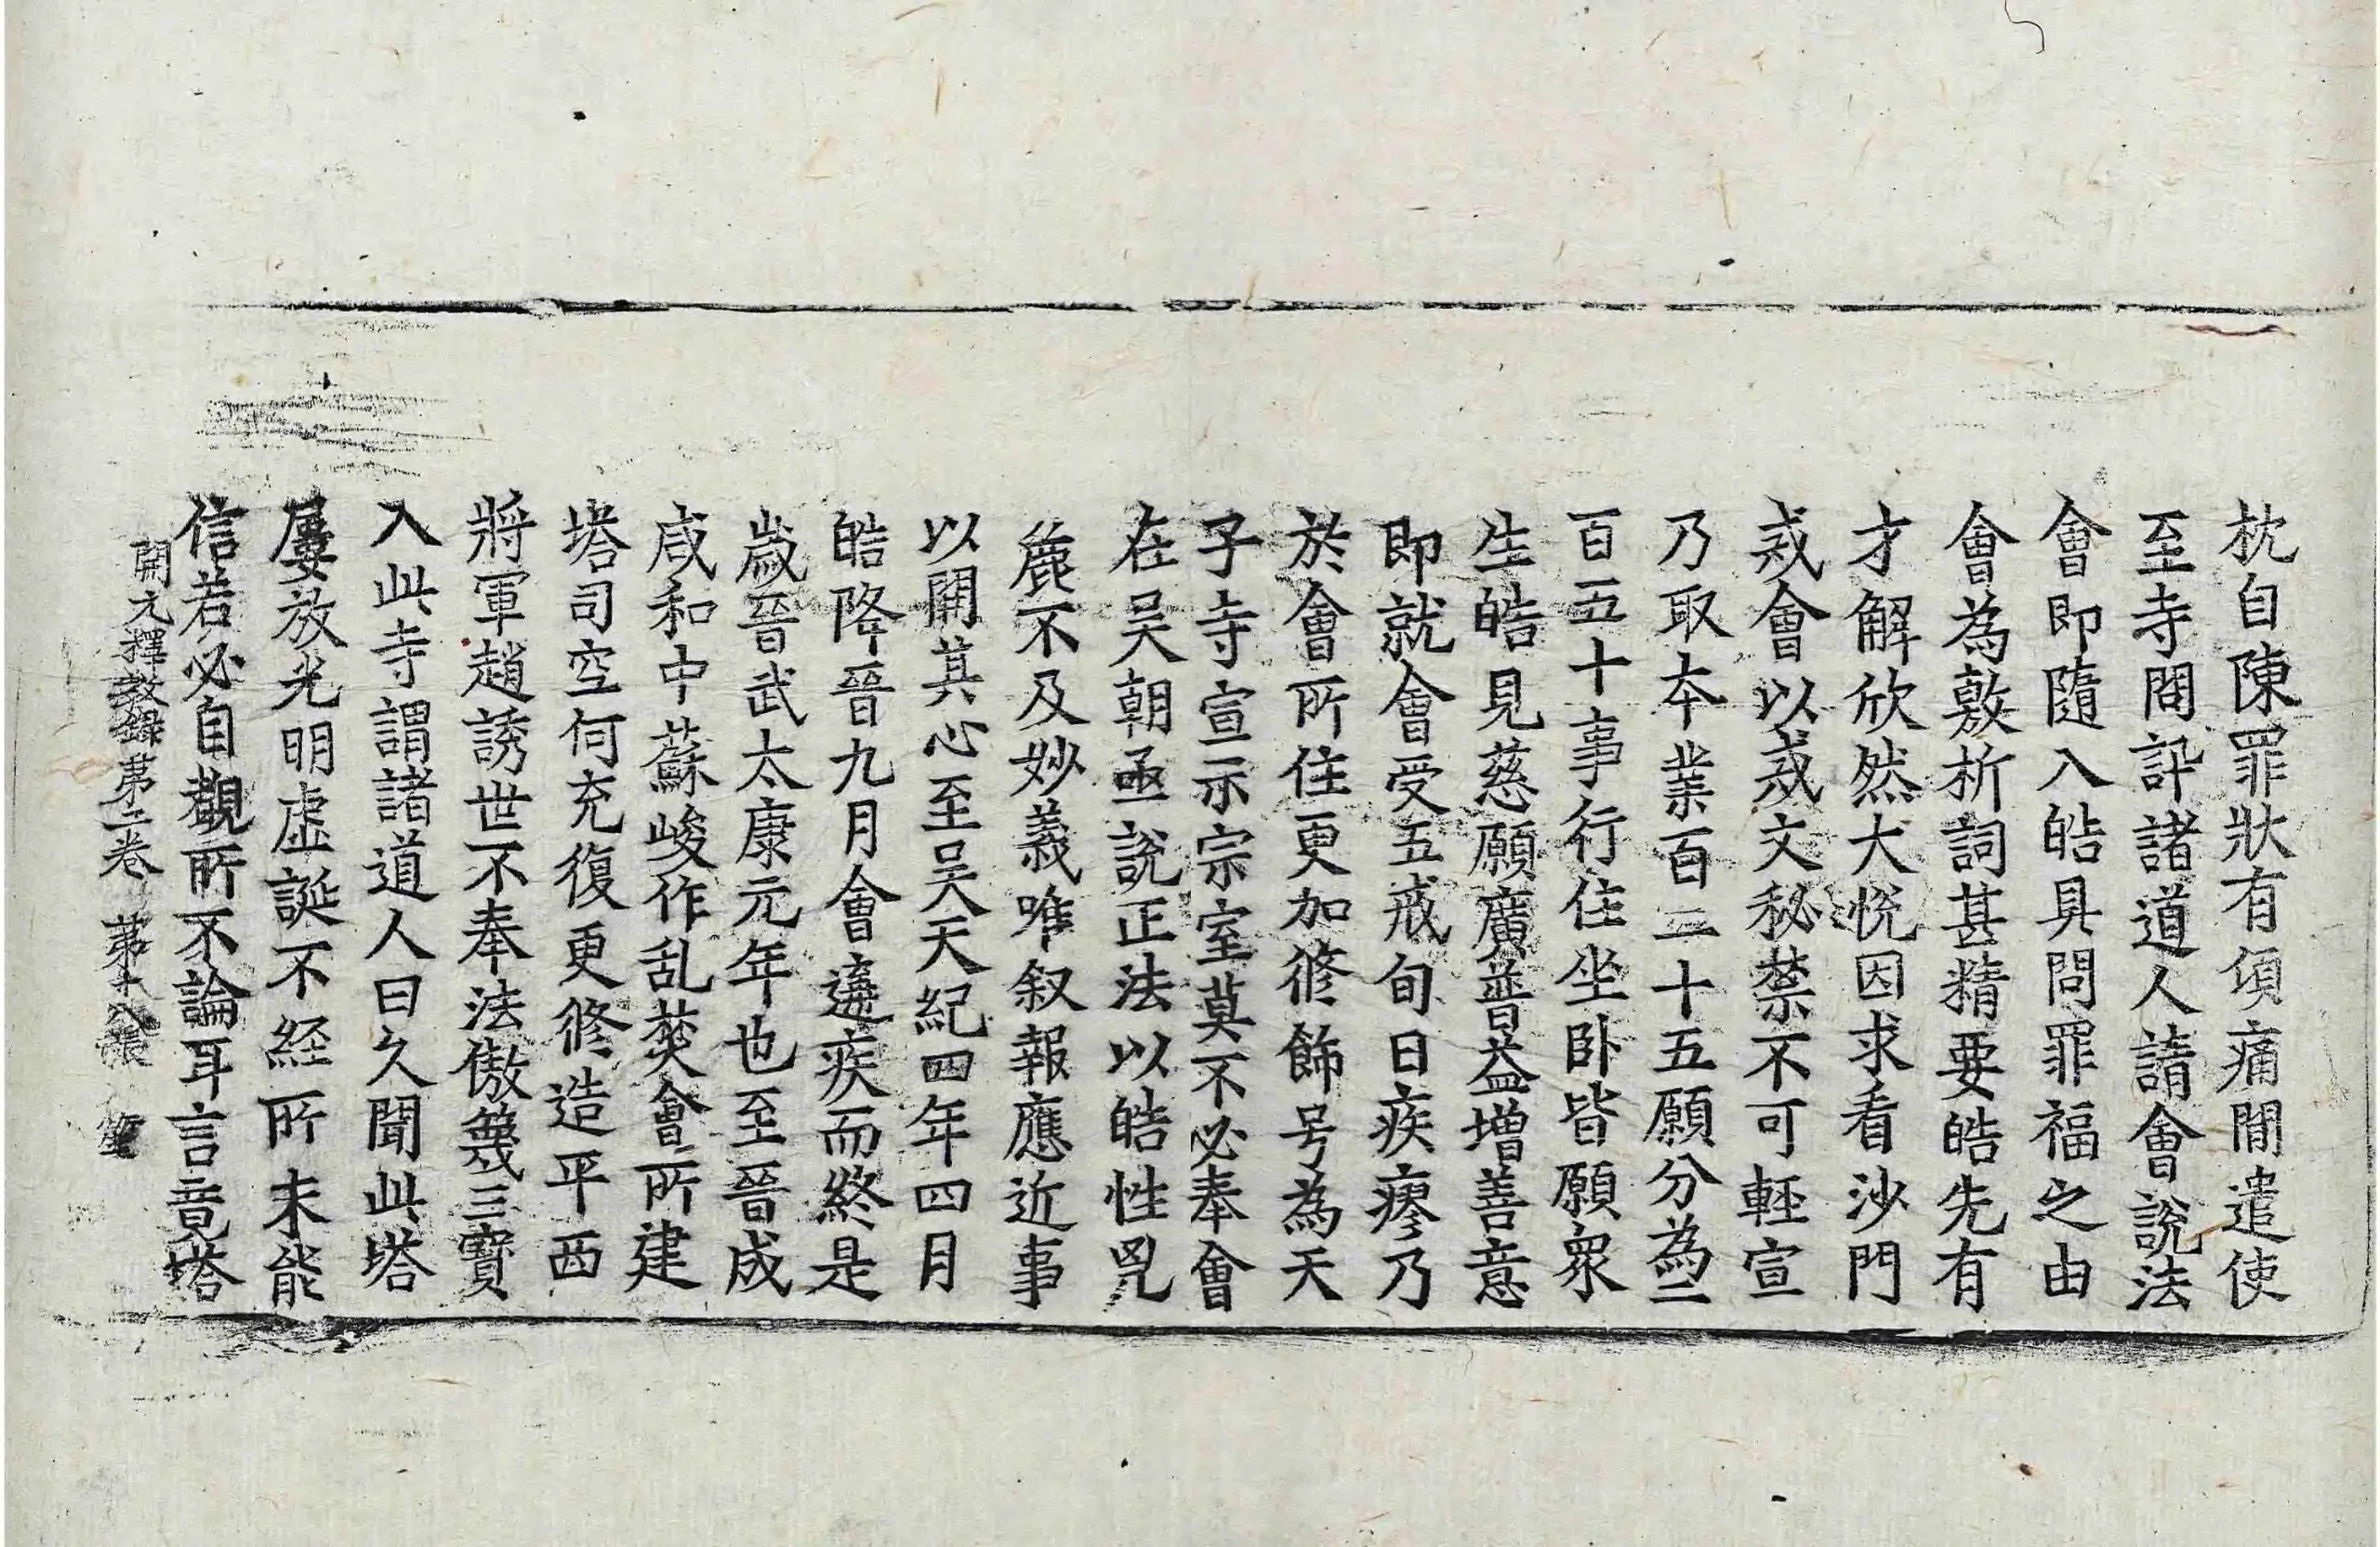 枕自陳罪狀有頃痛閒遣使
至寺問訃諸道人請會說法
會即隨入皓具問罪福之由
會為敷析詞甚精要皓先有
才解欣然大悅因求看沙門
戒會以戒文秘禁不可輕宣
乃取夲業百三十五願分為二
百五十事行住坐臥皆願眾
生皓見慈願廣普益增善意
即就會受五戒旬日疾瘳乃
於會所住更加修飾号為天
子寺宣示宗室莫不必奉會
在吳朝亟說正法以皓性兇
麁不及妙義唯叙報應近事
以開其心至吳天紀四年四月
皓降晉九月會遘疾而終是
歲晉武太康元年也至晉成
咸和中蘇峻作乱焚會所建
塔司空何充復更修造平西
將軍趙誘世不奉法傲篾三寶
入此寺謂諸道人曰久聞此塔
屢放光明虛誕不經所未能
信若必自觀所不論耳言竟塔
開元釋教録苐二卷 苐十八張